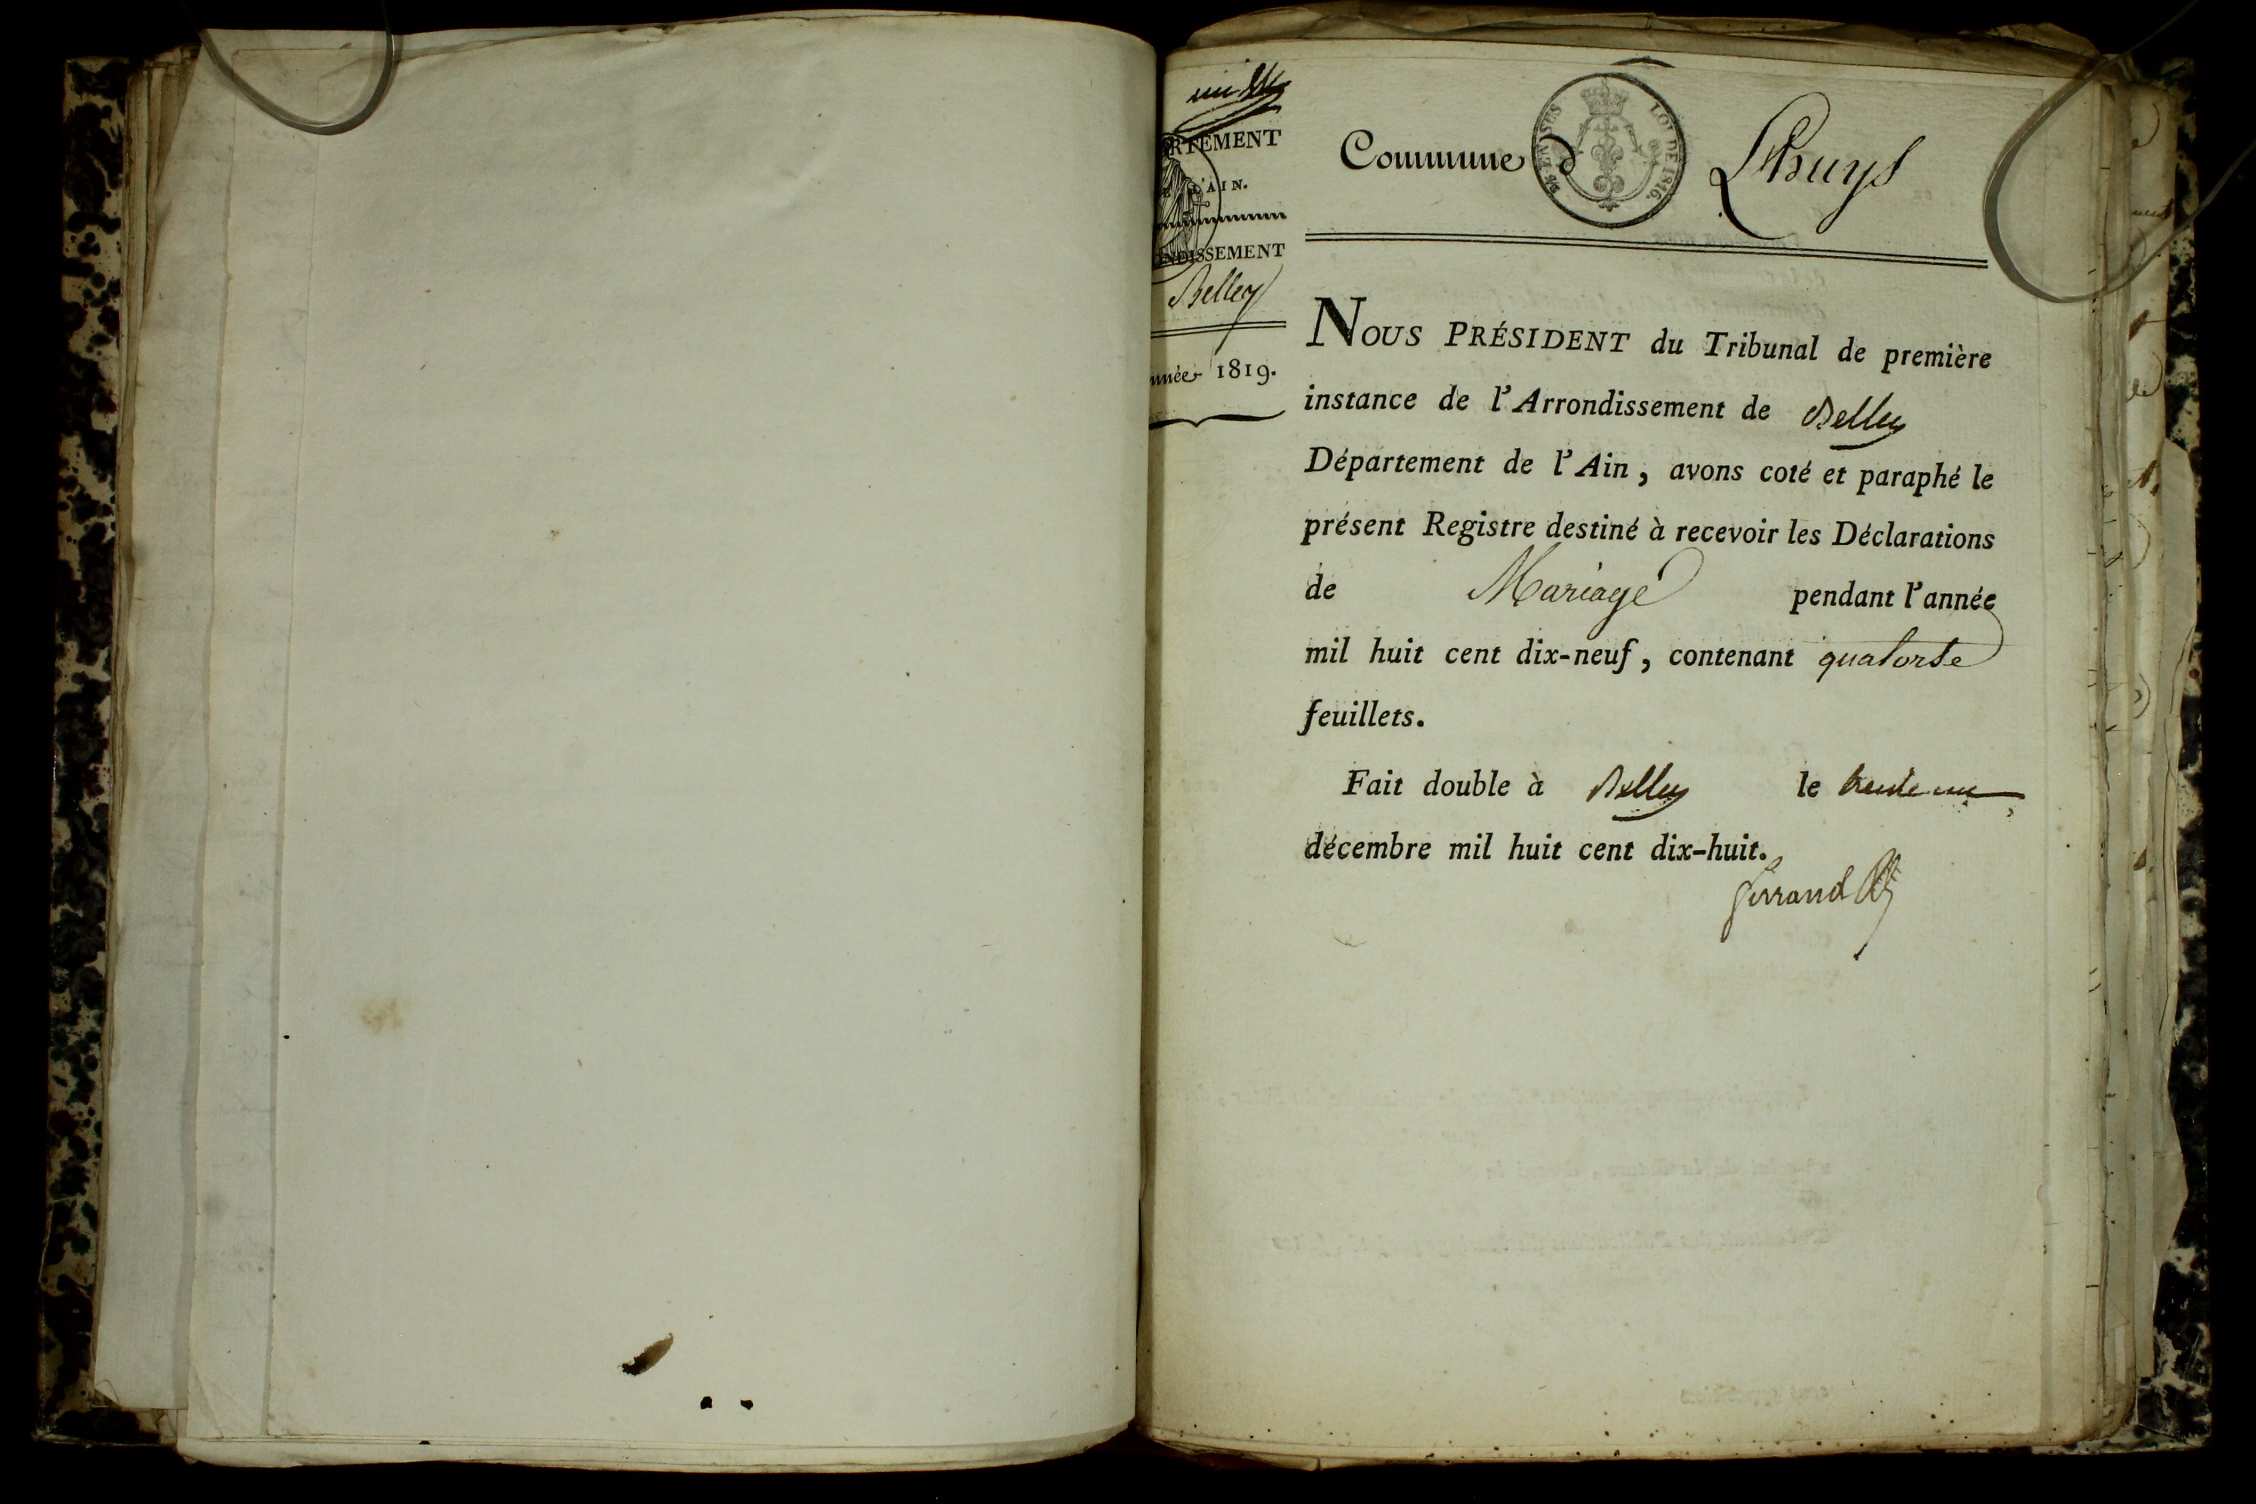 RTEMENT
L'AIN.
NDISSEMENT
Belley
nnée 1819.
Commune d Lhuys
EN SUS
LOI DE 1816.
NOUS PRÉSIDENT du Tribunal de première
instance de l'Arrondissement de Belley
Département de l'Ain, avons coté et paraphé le
présent Registre destiné à recevoir les Déclarations
de Mariage pendant l'année
mil huit cent dix-neuf, contenant quatorse
feuillets.
Fait double à Belley le trente un
décembre mil huit cent dix-huit.